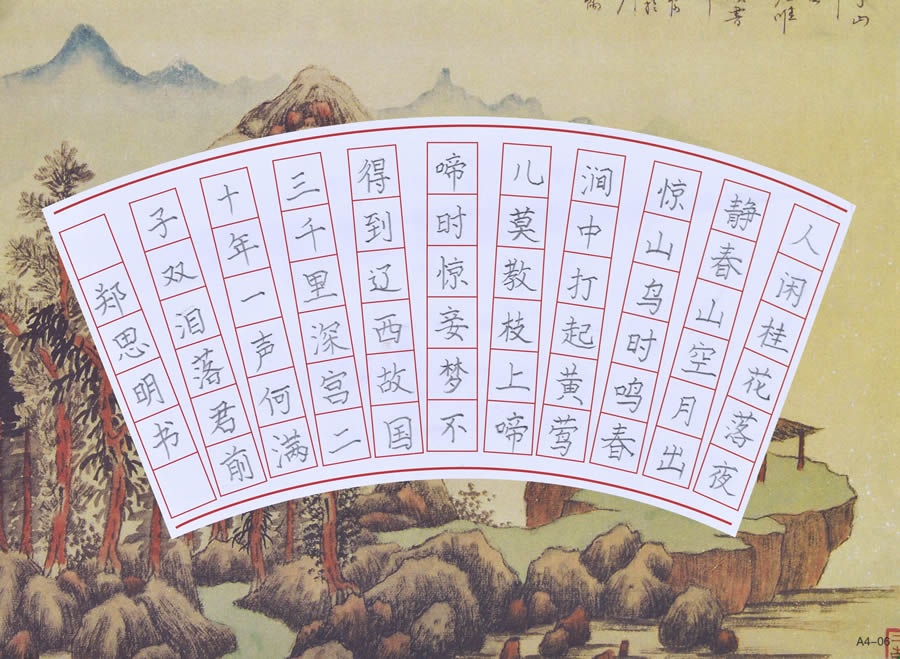 人闲桂花落夜
静春山空月出
惊山鸟时鸣春
涧中打起黄莺
儿莫教枝上啼
啼时惊妾梦不
得到辽西故国
三千里深宫二
十年一声何满
子双泪落君前
郑思明书
A4-06